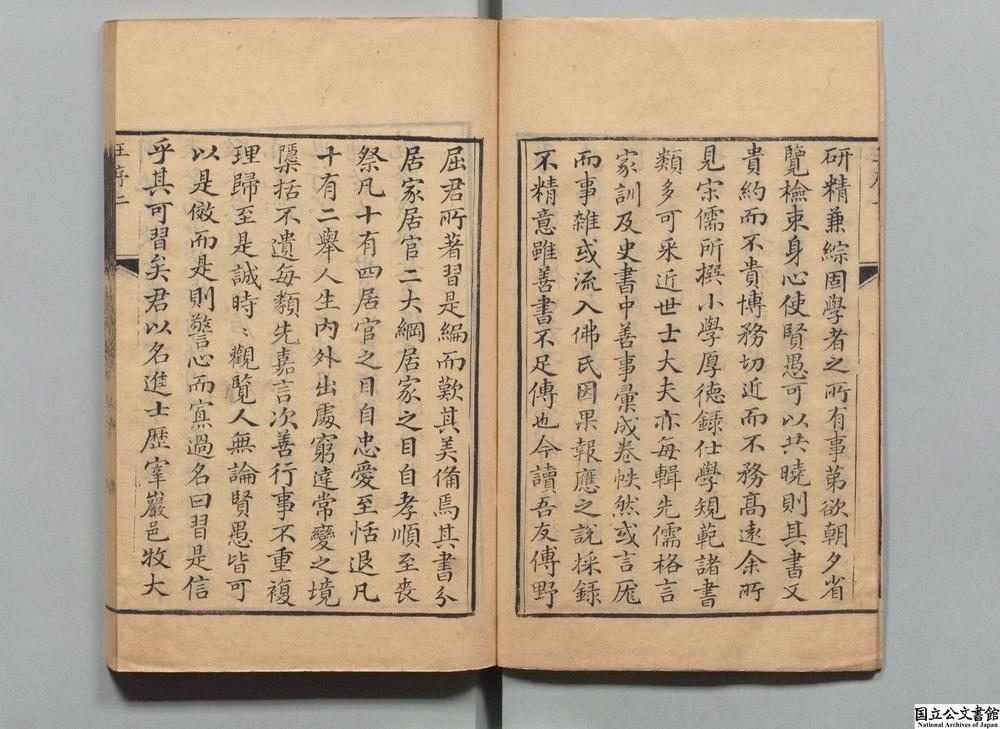 研精兼綜固學者之所有事苐欲朝夕省
覽檢束身心使賢愚可以共曉則其書又
貴約而不貴博務切近而不務髙遠余所
見宋儒所撰小學厚德錄仕學䂓範諸書
類多可采近世士大夫亦每輯先儒格言
家訓及史書中善事彙成卷帙然或言厖
而事雜或流入佛氏因果報應之說採録
不精意雖善書不足傳也今讀吾友傅野
屈君所著習是編而歎其美備焉其書分
居家居官二大綱居家之目自孝順至喪
祭凡十有四居官之目自忠愛至恬退凡
十有二舉人生内外出處窮達常變之境
櫽括不遺每類先嘉言次善行事不重複
理歸至是誠時〻觀覧人無論賢愚皆可
以是儆而是則警心而寡過名曰習是信
乎其可習矣君以名進士歷宰巖邑牧大
王序 二
国立公文書館
National Archives of Japan